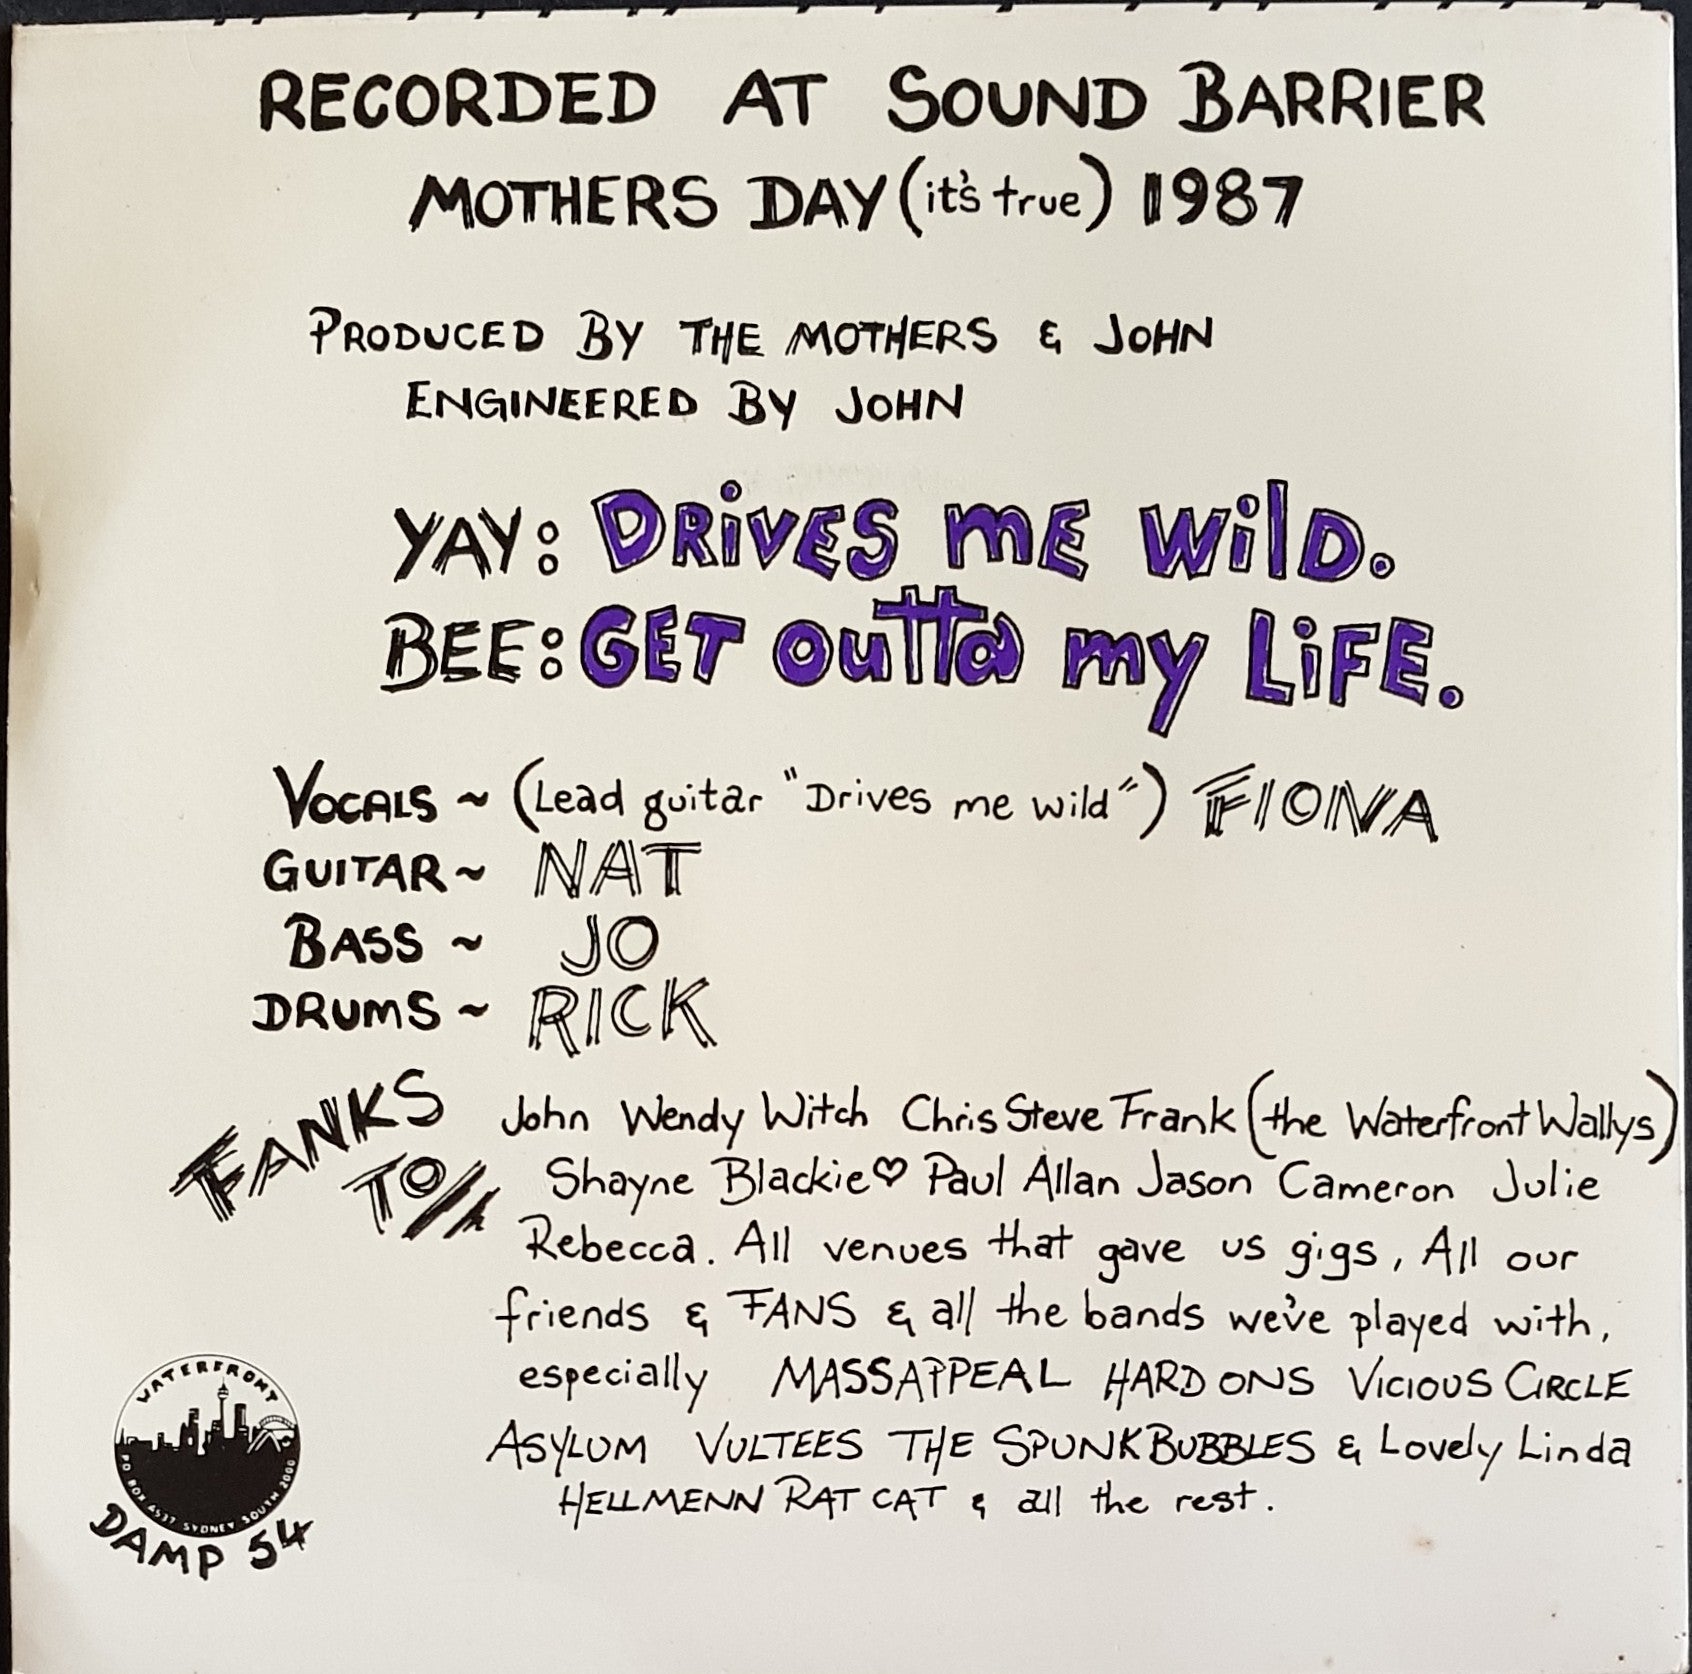 RECORDED AT SOUND BARRIER
MOTHERS DAY (it's true) 1987
PRODUCED BY THE MOTHERS & JOHN
ENGINEERED BY JOHN
YAY: DRiVES ME WilD.
BEE: GET OuTTa my LiFE.
VOCALS ~ (Lead guitar "Drives me wild") FIONA
GUITAR ~ NAT
BASS ~ JO
DRUMS ~ RICK
FANKS
TO//
John Wendy Witch Chris Steve Frank (the Waterfront Wallys)
Shayne Blackie♡ Paul Allan Jason Cameron Julie
Rebecca. All venues that gave us gigs, All our
friends & FANS & all the bands we've played with,
especially MASSAPPEAL HARD ONS VICIOUS CIRCLE
ASYLUM VULTEES THE SPUNKBUBBLES & Lovely Linda
HELLMENN RAT CAT & all the rest.
WATERFRONT
PO BOX A537 SYDNEY SOUTH 2000
DAMP 54